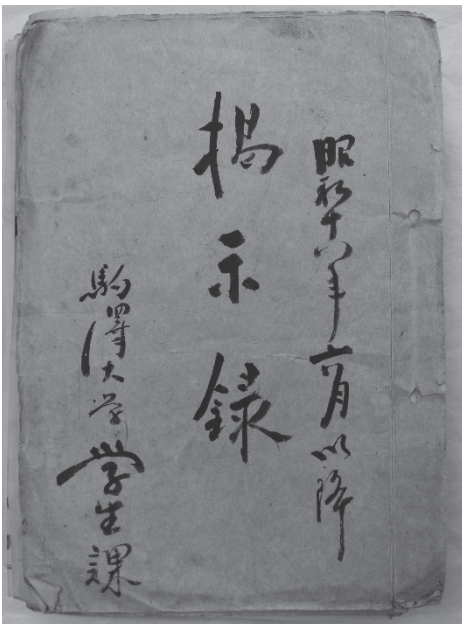 昭和十八年六月以降
掲示録
駒澤大学学生課